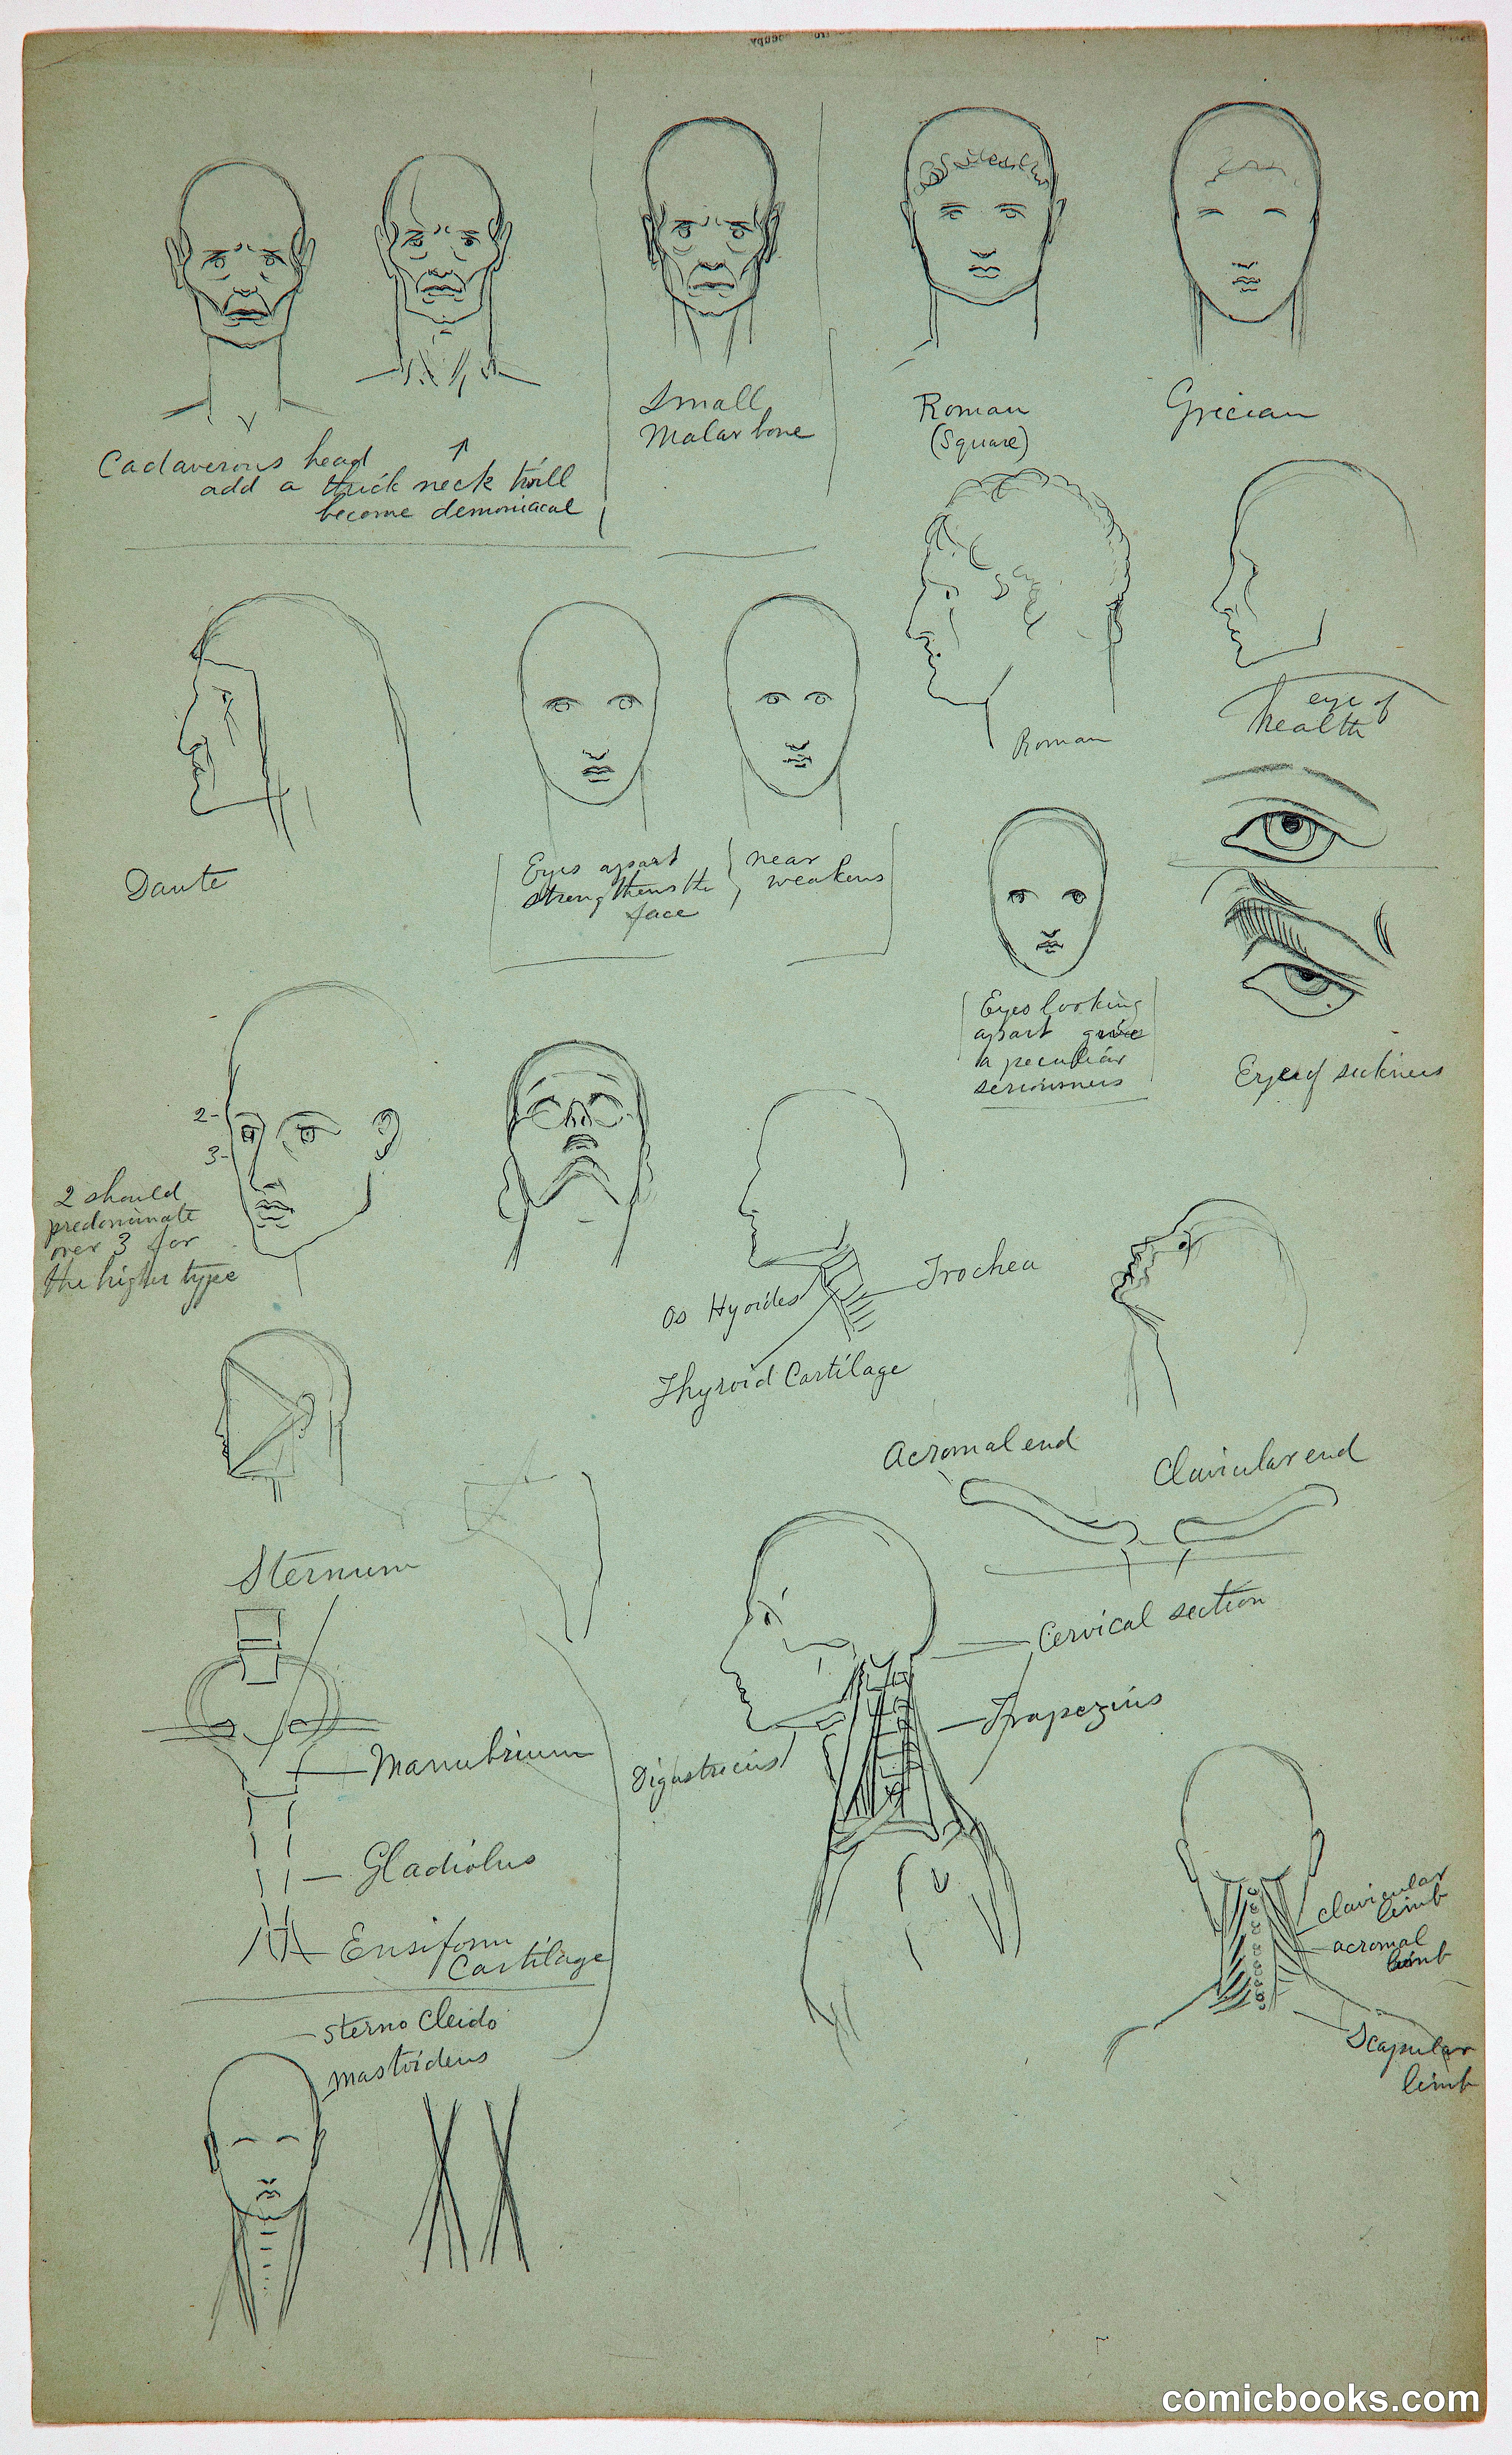 Small
Malar bone
Roman
(Square)
Grecian
Cadaverous head
add a thick neck 'twill
become demoniacal
eye of
health
Roman
Dante
Eyes apart
strengthens the
face
near
weakens
Eyes looking
apart give
a peculiar
seriousness
Eye of sickness
2-
3-
2 should
predominate
over 3 for
the higher type
Os Hyoides
Trochea
Thyroid Cartilage
Acromal end
Clavicular end
Sternum
Cervical section
Trapezius
Manubrium
Digastricus
Gladiolus
Ensiform
Cartilage
Clavicular
limb
acromal
limb
Scapular
limb
Sterno Cleido
mastoideus
comicbooks.com